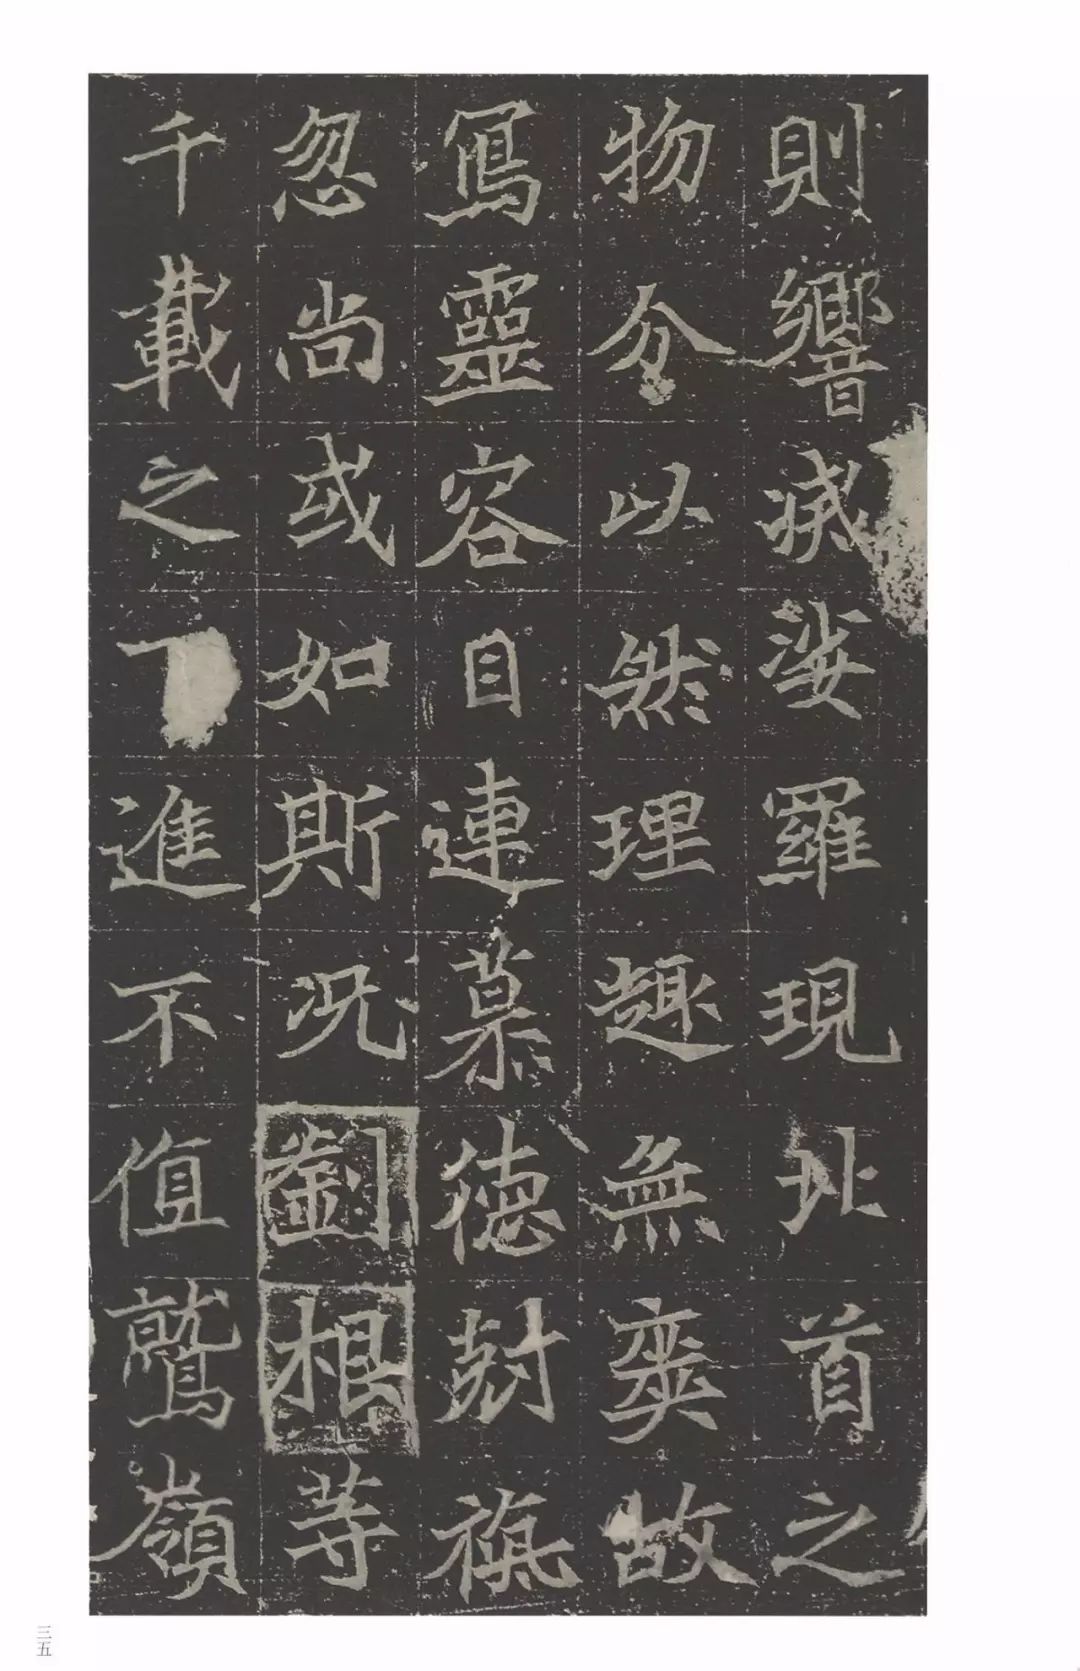 則響滅娑羅現北首之
物分以然理趣無爽故
寫靈容目連慕德剋栴
忽尚或如斯況劉根等
千載之下進不值鷲嶺
三五